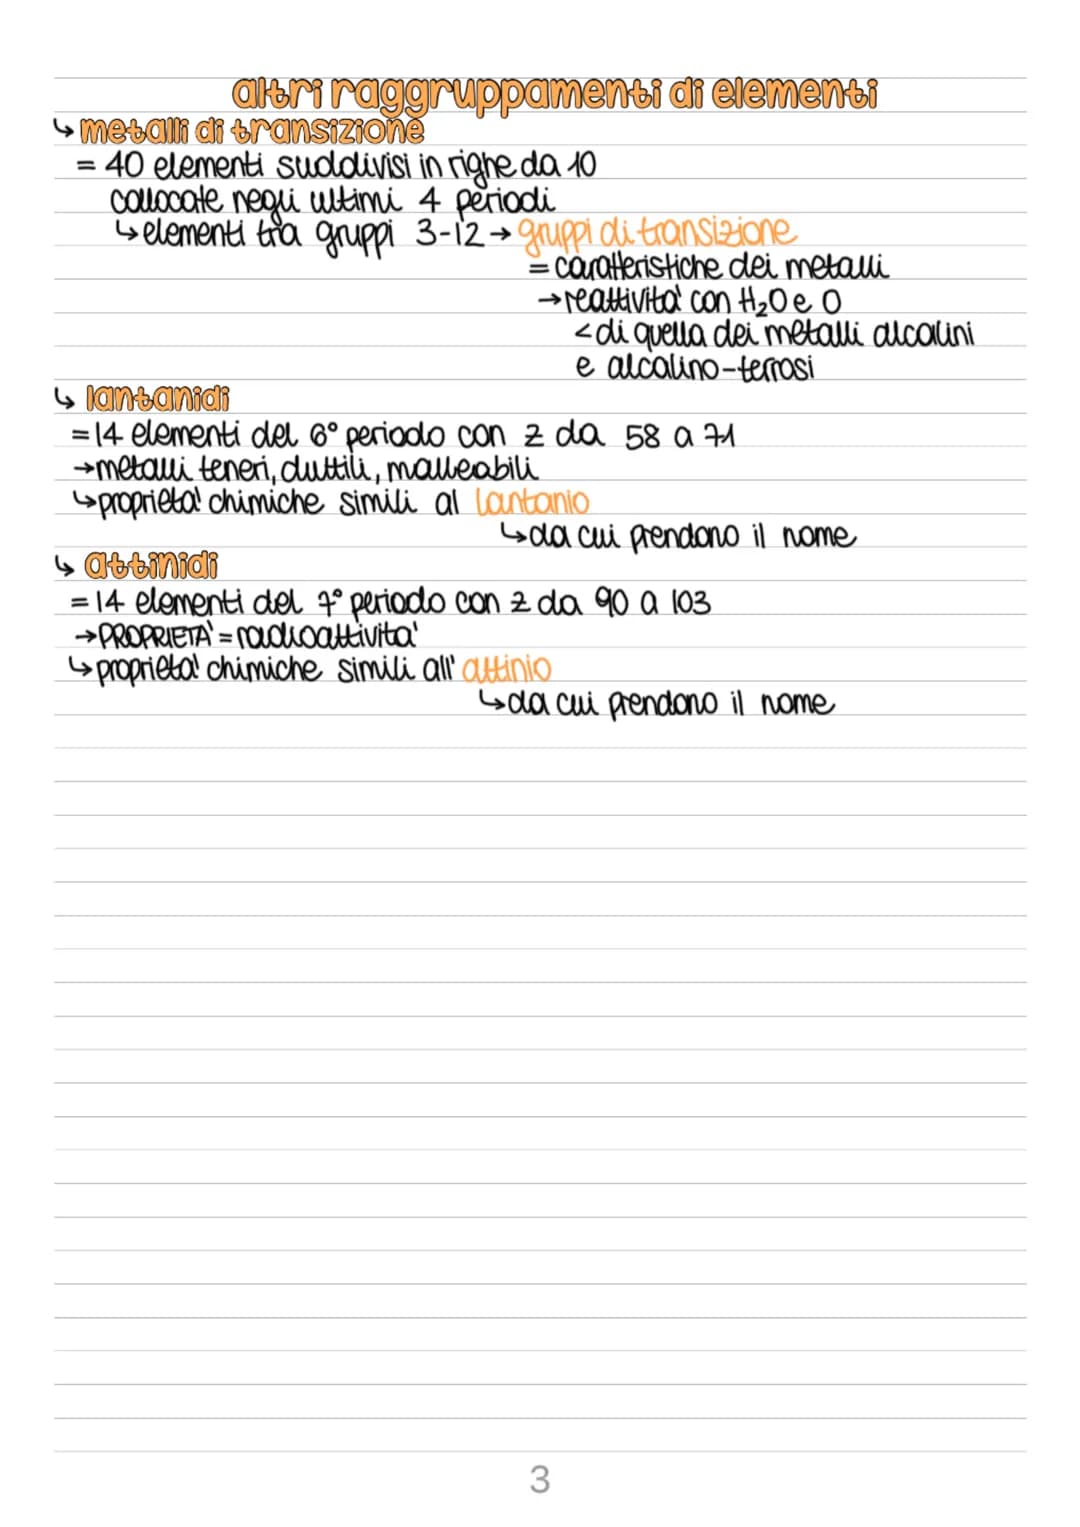 altri raggruppamenti di elementi
↳ metalli di transizione
= 40 elementi suddivisi in righe da 10
collocate negli ultimi 4 periodi
↳ elementi tra gruppi 3-12 → gruppi di transizione
= caratteristiche dei metalli
→ reattività con H₂O e O
< di quella dei metalli alcalini
e alcalino-terrosi
↳ lantanidi
= 14 elementi del 6° periodo con z da 58 a 71
→ metalli teneri, duttili, malleabili
↳ proprietà chimiche simili al lantanio
↳ da cui prendono il nome
↳ attinidi
= 14 elementi del 7° periodo con z da 90 a 103
→ PROPRIETÀ = radioattività
↳ proprietà chimiche simili all' attinio
↳ da cui prendono il nome
3